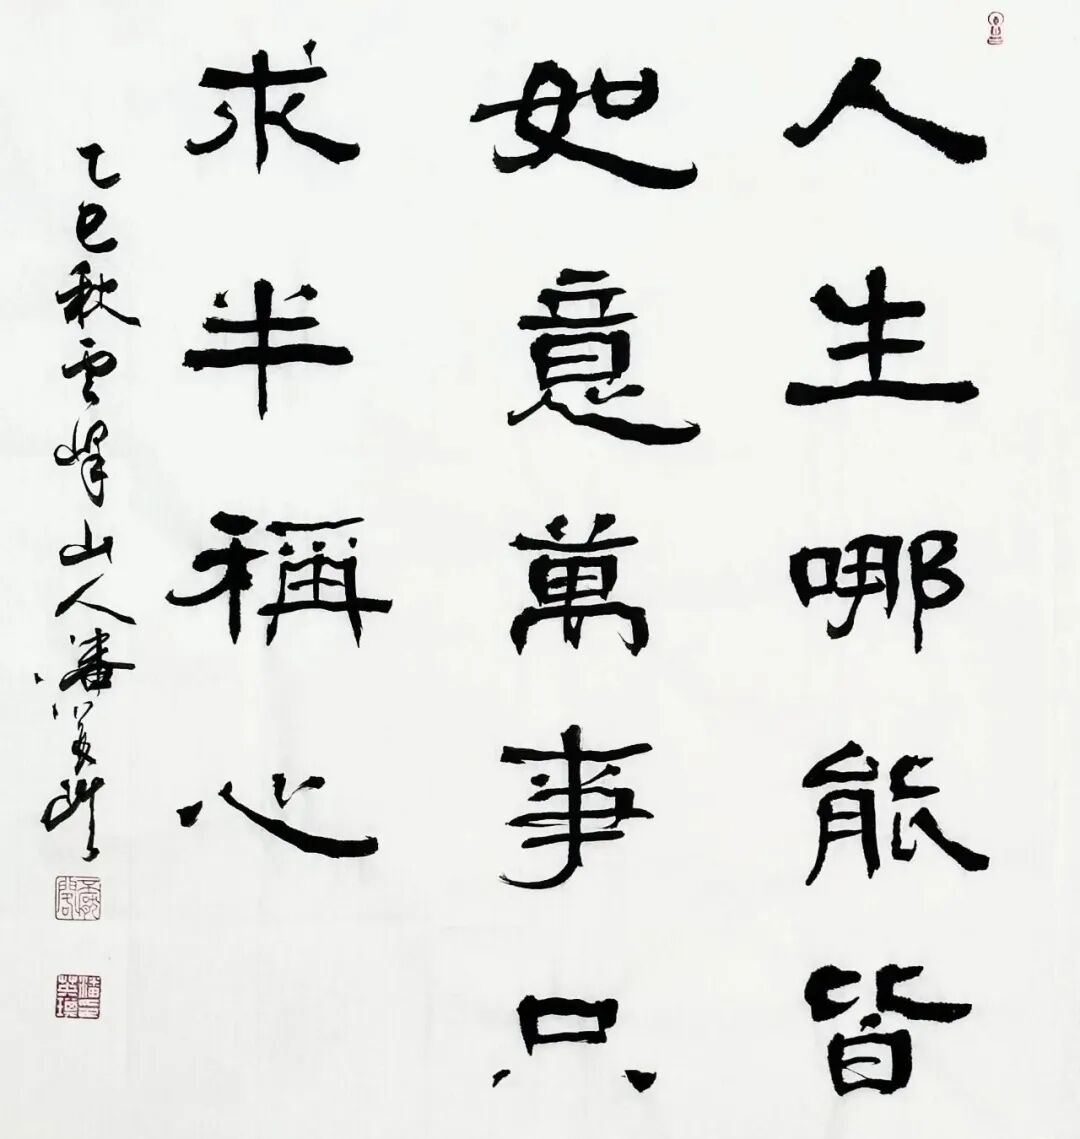 人生哪能皆
如意萬事只
求半稱心
乙巳秋雲峰山人潘英